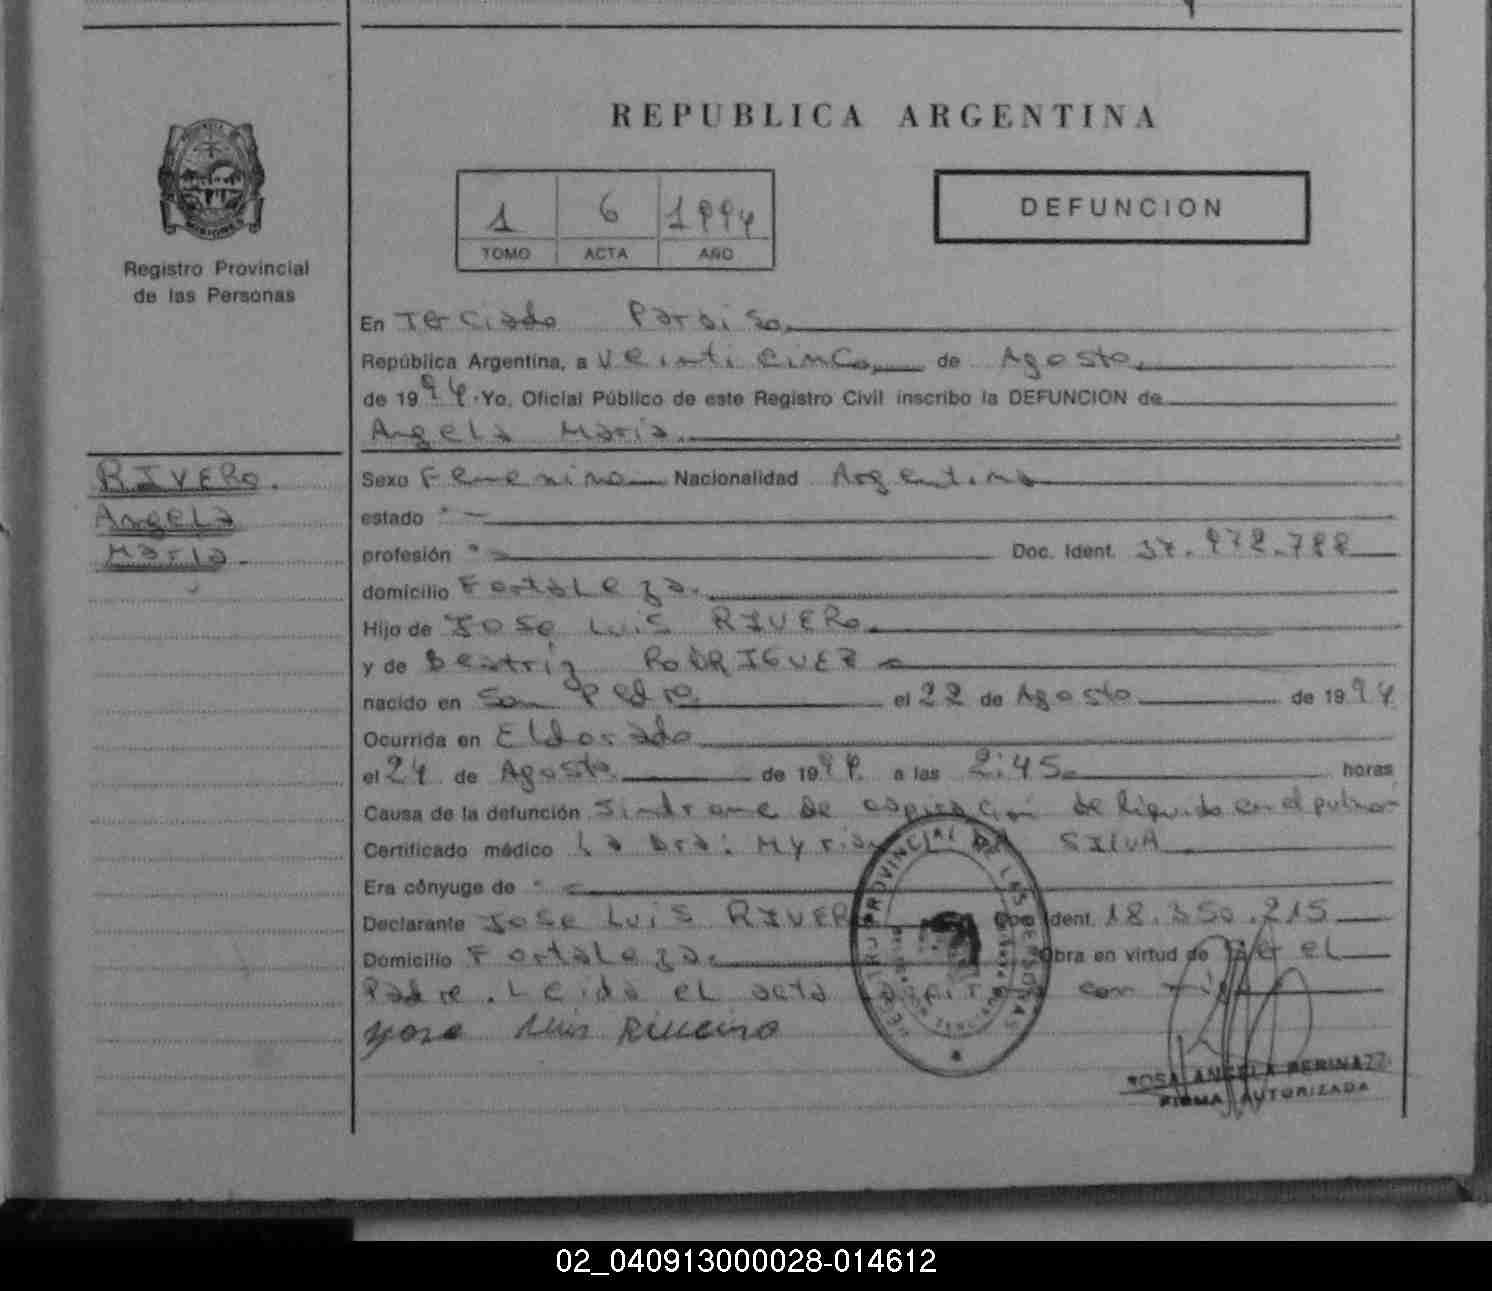 REPUBLICA ARGENTINA
MISIONES
Registro Provincial
de las Personas
1 6 1994
TOMO ACTA AÑO
DEFUNCION
En Terciado Paraiso
República Argentina, a Veinti cinco de Agosto
de 1994. Yo, Oficial Público de este Registro Civil inscribo la DEFUNCION de
Angela Maria.
RIVERO.
Angela
Maria.
Sexo Femenino Nacionalidad Argentina
estado "—
profesión "— Doc. Ident.
domicilio Fortaleza.
Hijo de Jose Luis RIVERO.
y de Beatriz RODRIGUEZ
nacido en San Pedro el 22 de Agosto de 1994
Ocurrida en Eldorado
el 24 de Agosto de 1994 a las 2:45 horas
Causa de la defunción Sindrome de aspiración de liquido en el pulmon
Certificado médico La Dra: Myrian DA SILVA
Era cónyuge de "—
Declarante Jose Luis RIVERO Doc. Ident. 18.350.215
Domicilio Fortaleza. Obra en virtud de ser el
Padre. Leida el acta
yose luis Riveiro
REGISTRO PROVINCIAL DE LAS PERSONAS
ROSA ANGELA PERINAZZI
FIRMA AUTORIZADA
02_040913000028-014612